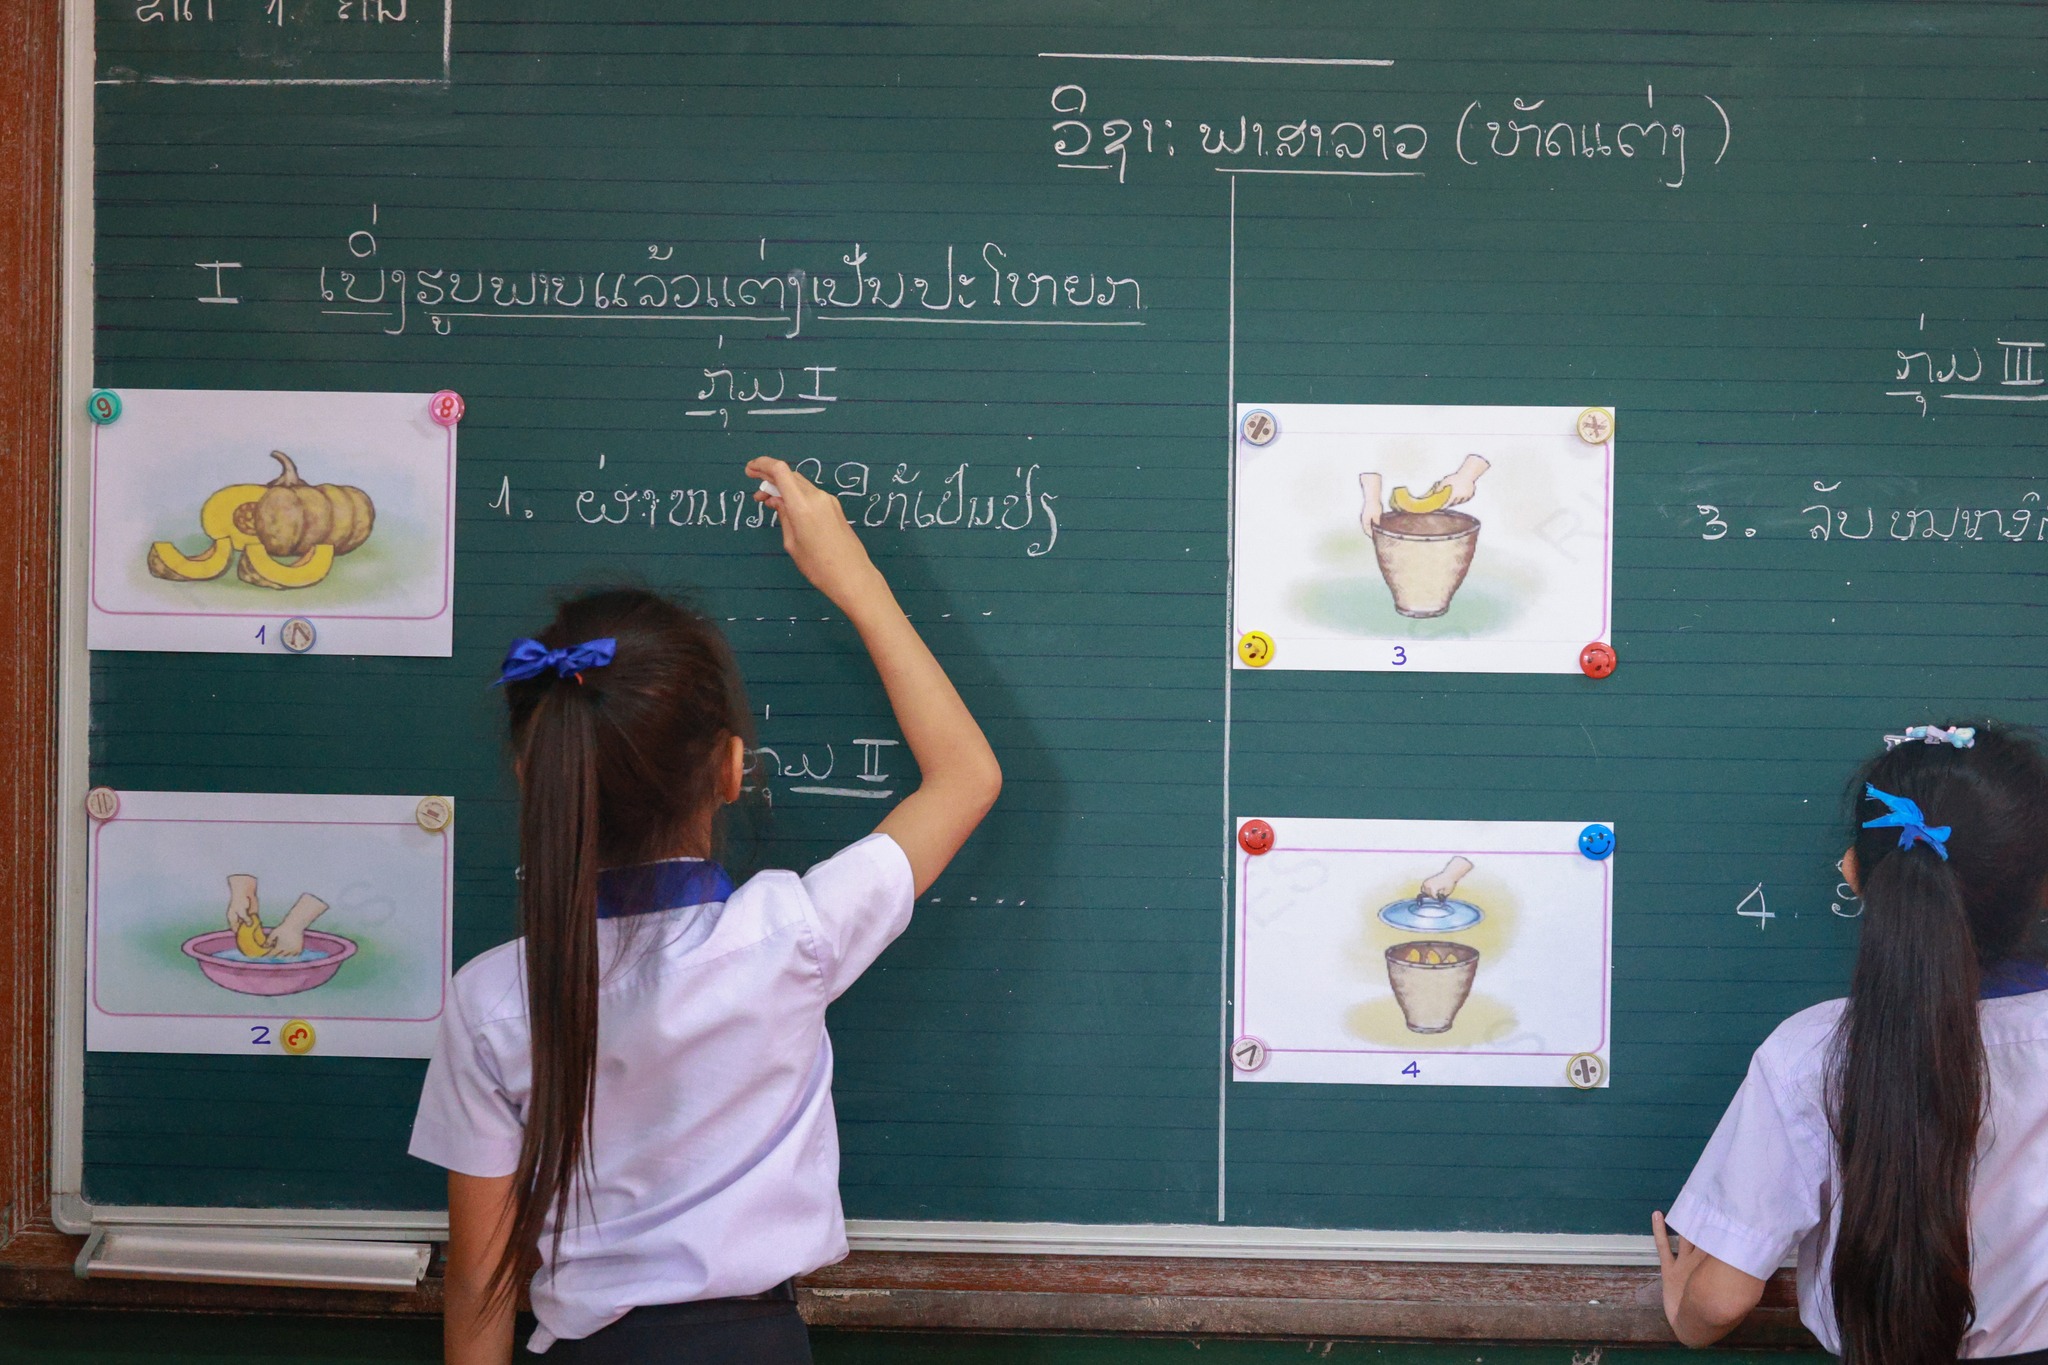 ວິຊາ: ພາສາລາວ (ຫັດແຕ່ງ)
I ເບິ່ງຮູບພາບແລ້ວແຕ່ງເປັນປະໂຫຍກ
ກຸ່ມ I
1. ຜ່າໝາກ ໃຫ້ເປັນປ່ຽງ
1
ກຸ່ມ II
2
ກຸ່ມ III
3.
3
4.
4